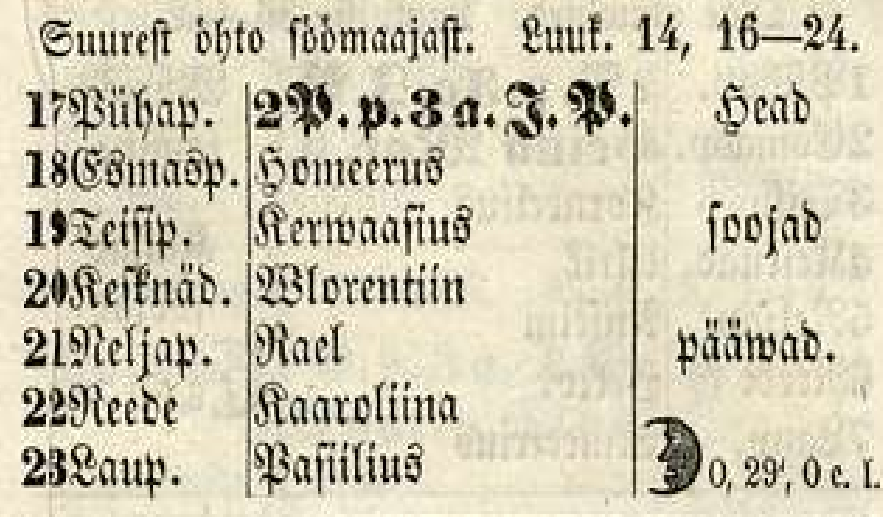 Suurest öhto söömaajast. Luuk. 14, 16—24.
17 Pühap. 2 P. p. 3 a. J. P. Head
18 Esmasp. Homeerus
19 Teisip. Kerwaasius soojad
20 Kesknäd. Wlorentiin
21 Neljap. Rael pääwad.
22 Reede Kaaroliina
23 Laup. Pasiilius 0, 29', 0 e. l.